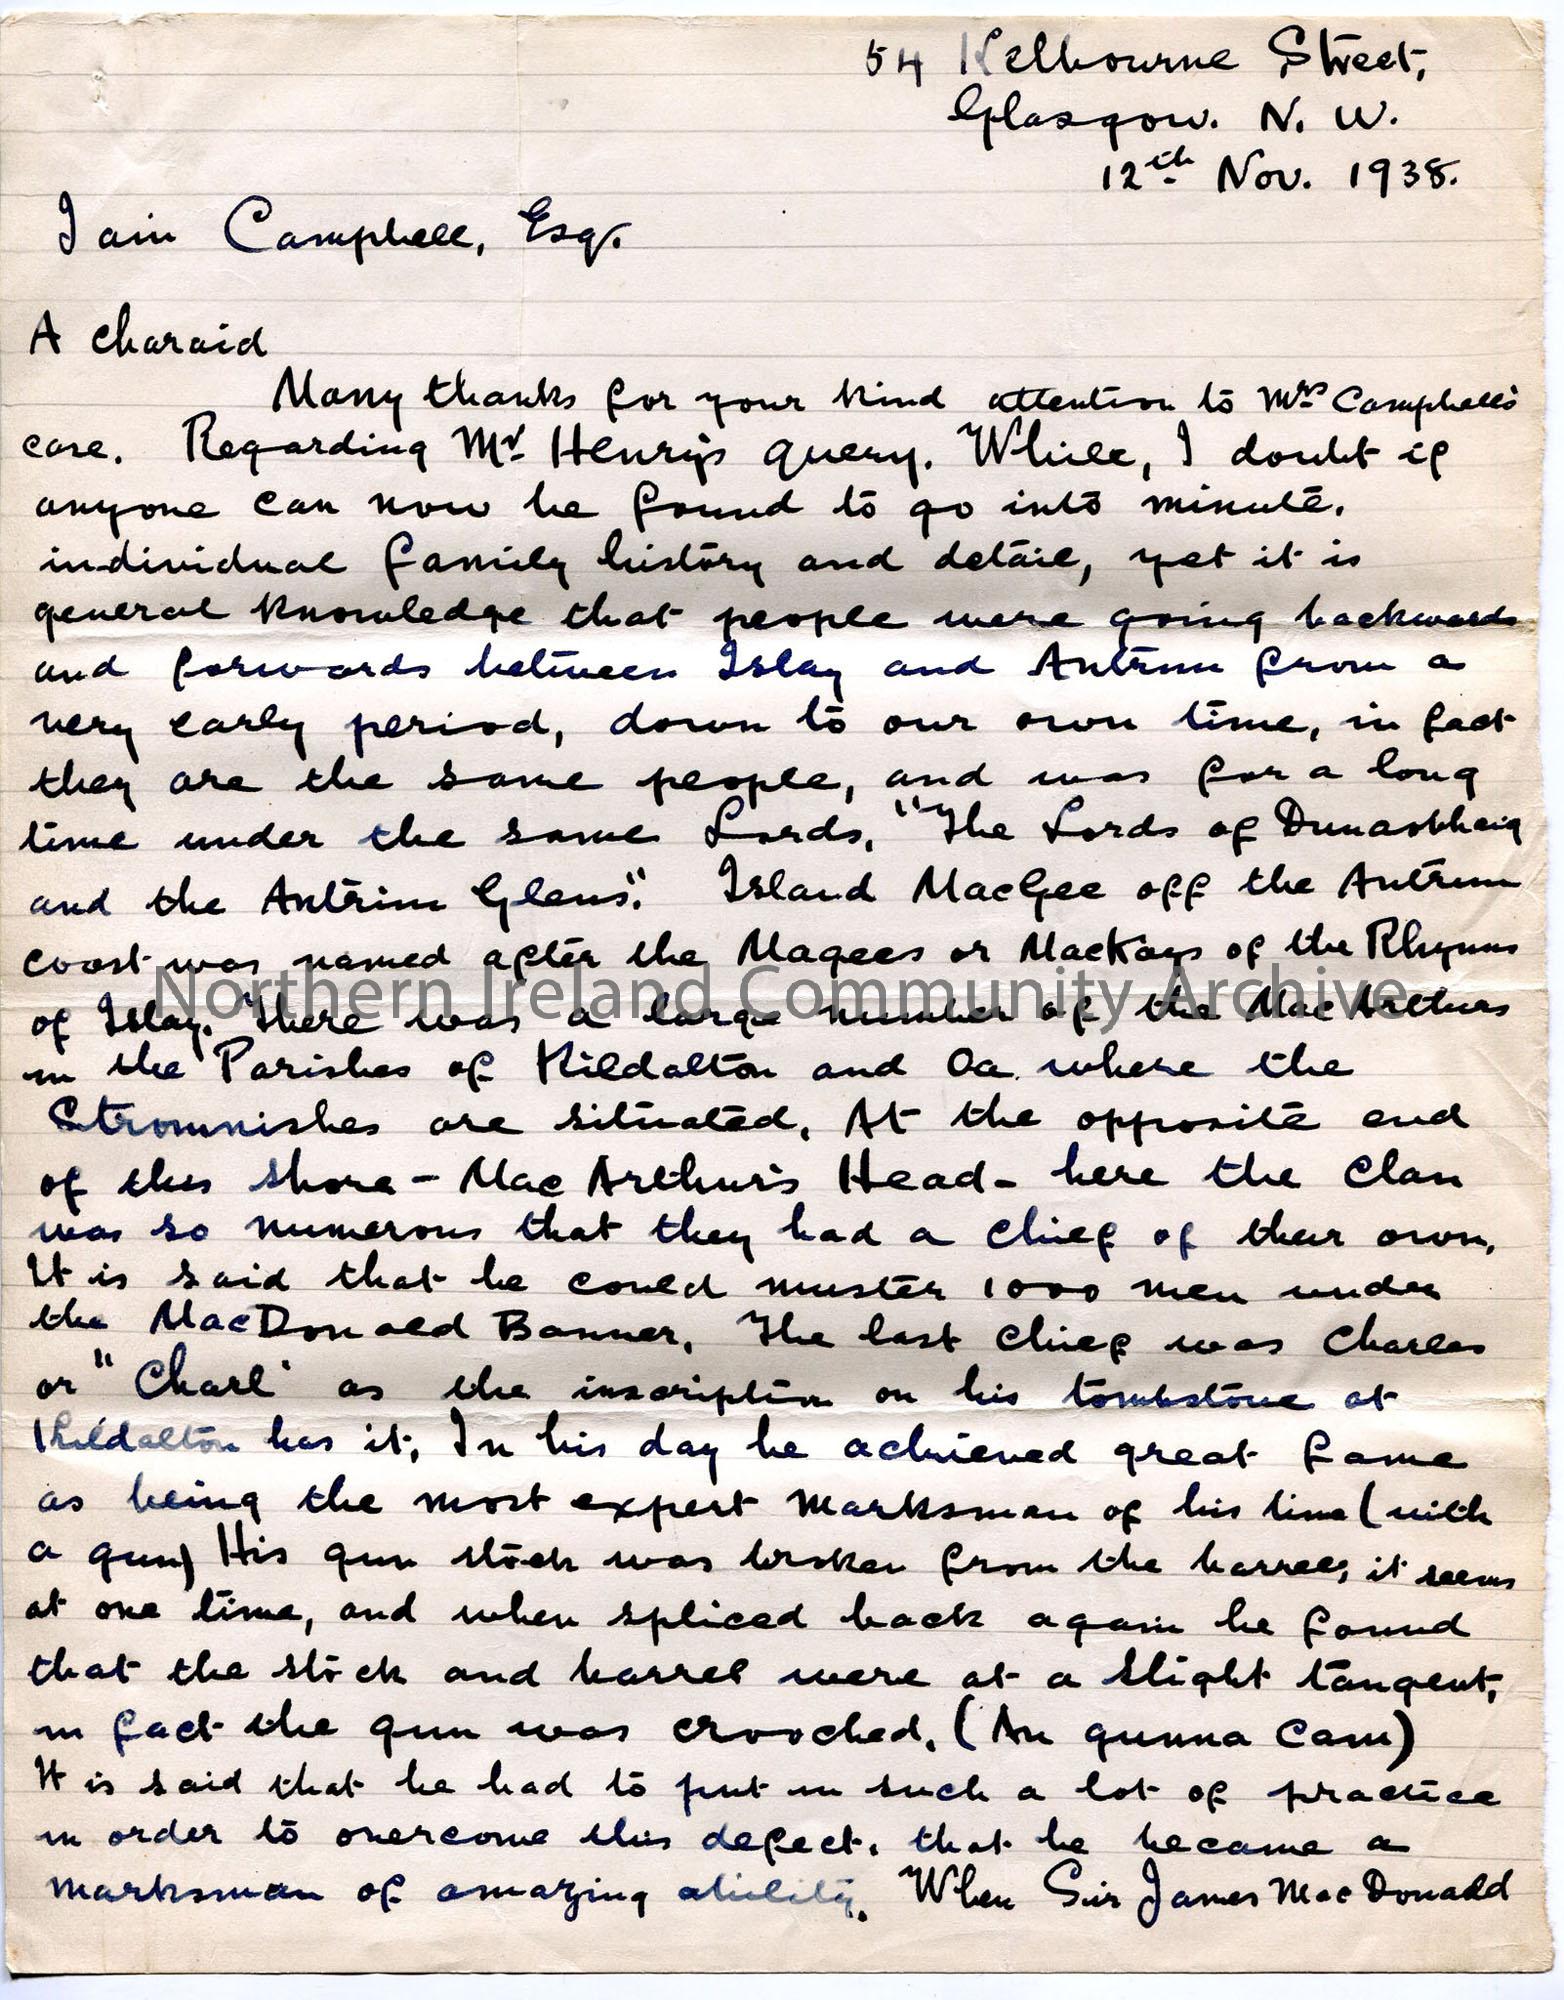 54 Kelbourne Street,
Glasgow. N. W.
12th Nov. 1938.
Iain Campbell, Esq.
A charaid
Many thanks for your kind attention to Mrs Campbell's
case. Regarding Mr Henry's query. While, I doubt if
anyone can now be found to go into minute.
individual family history and detail, yet it is
general knowledge that people were going backwards
and forwards between Islay and Antrim from a
very early period, down to our own time, in fact
they are the same people, and was for a long
time under the same Lords, "The Lords of Dunaobhaig
and the Antrim Glens". Island MacGee off the Antrim
coast was named after the Magees or MacKays of the Rhynns
of Islay. There was a large number of the MacArthurs
in the Parishes of Kildalton and Oa where the
Stromnishes are situated. At the opposite end
of this shore - MacArthur's Head - here the Clan
was so numerous that they had a chief of their own.
It is said that he could muster 1000 men under
the MacDonald Banner. The last chief was Charles
or "Charl" as the inscription on his tombstone at
Kildalton has it, In his day he achieved great fame
as being the most expert marksman of his time (with
a gun) His gun stock was broken from the barrel, it seems
at one time, and when spliced back again he found
that the stock and barrel were at a slight tangent,
in fact the gun was crooched. (An gunna Cam)
It is said that he had to put in such a lot of practice
in order to overcome this defect. that he became a
marksman of amazing ability. When Sir James MacDonald
Northern Ireland Community Archive